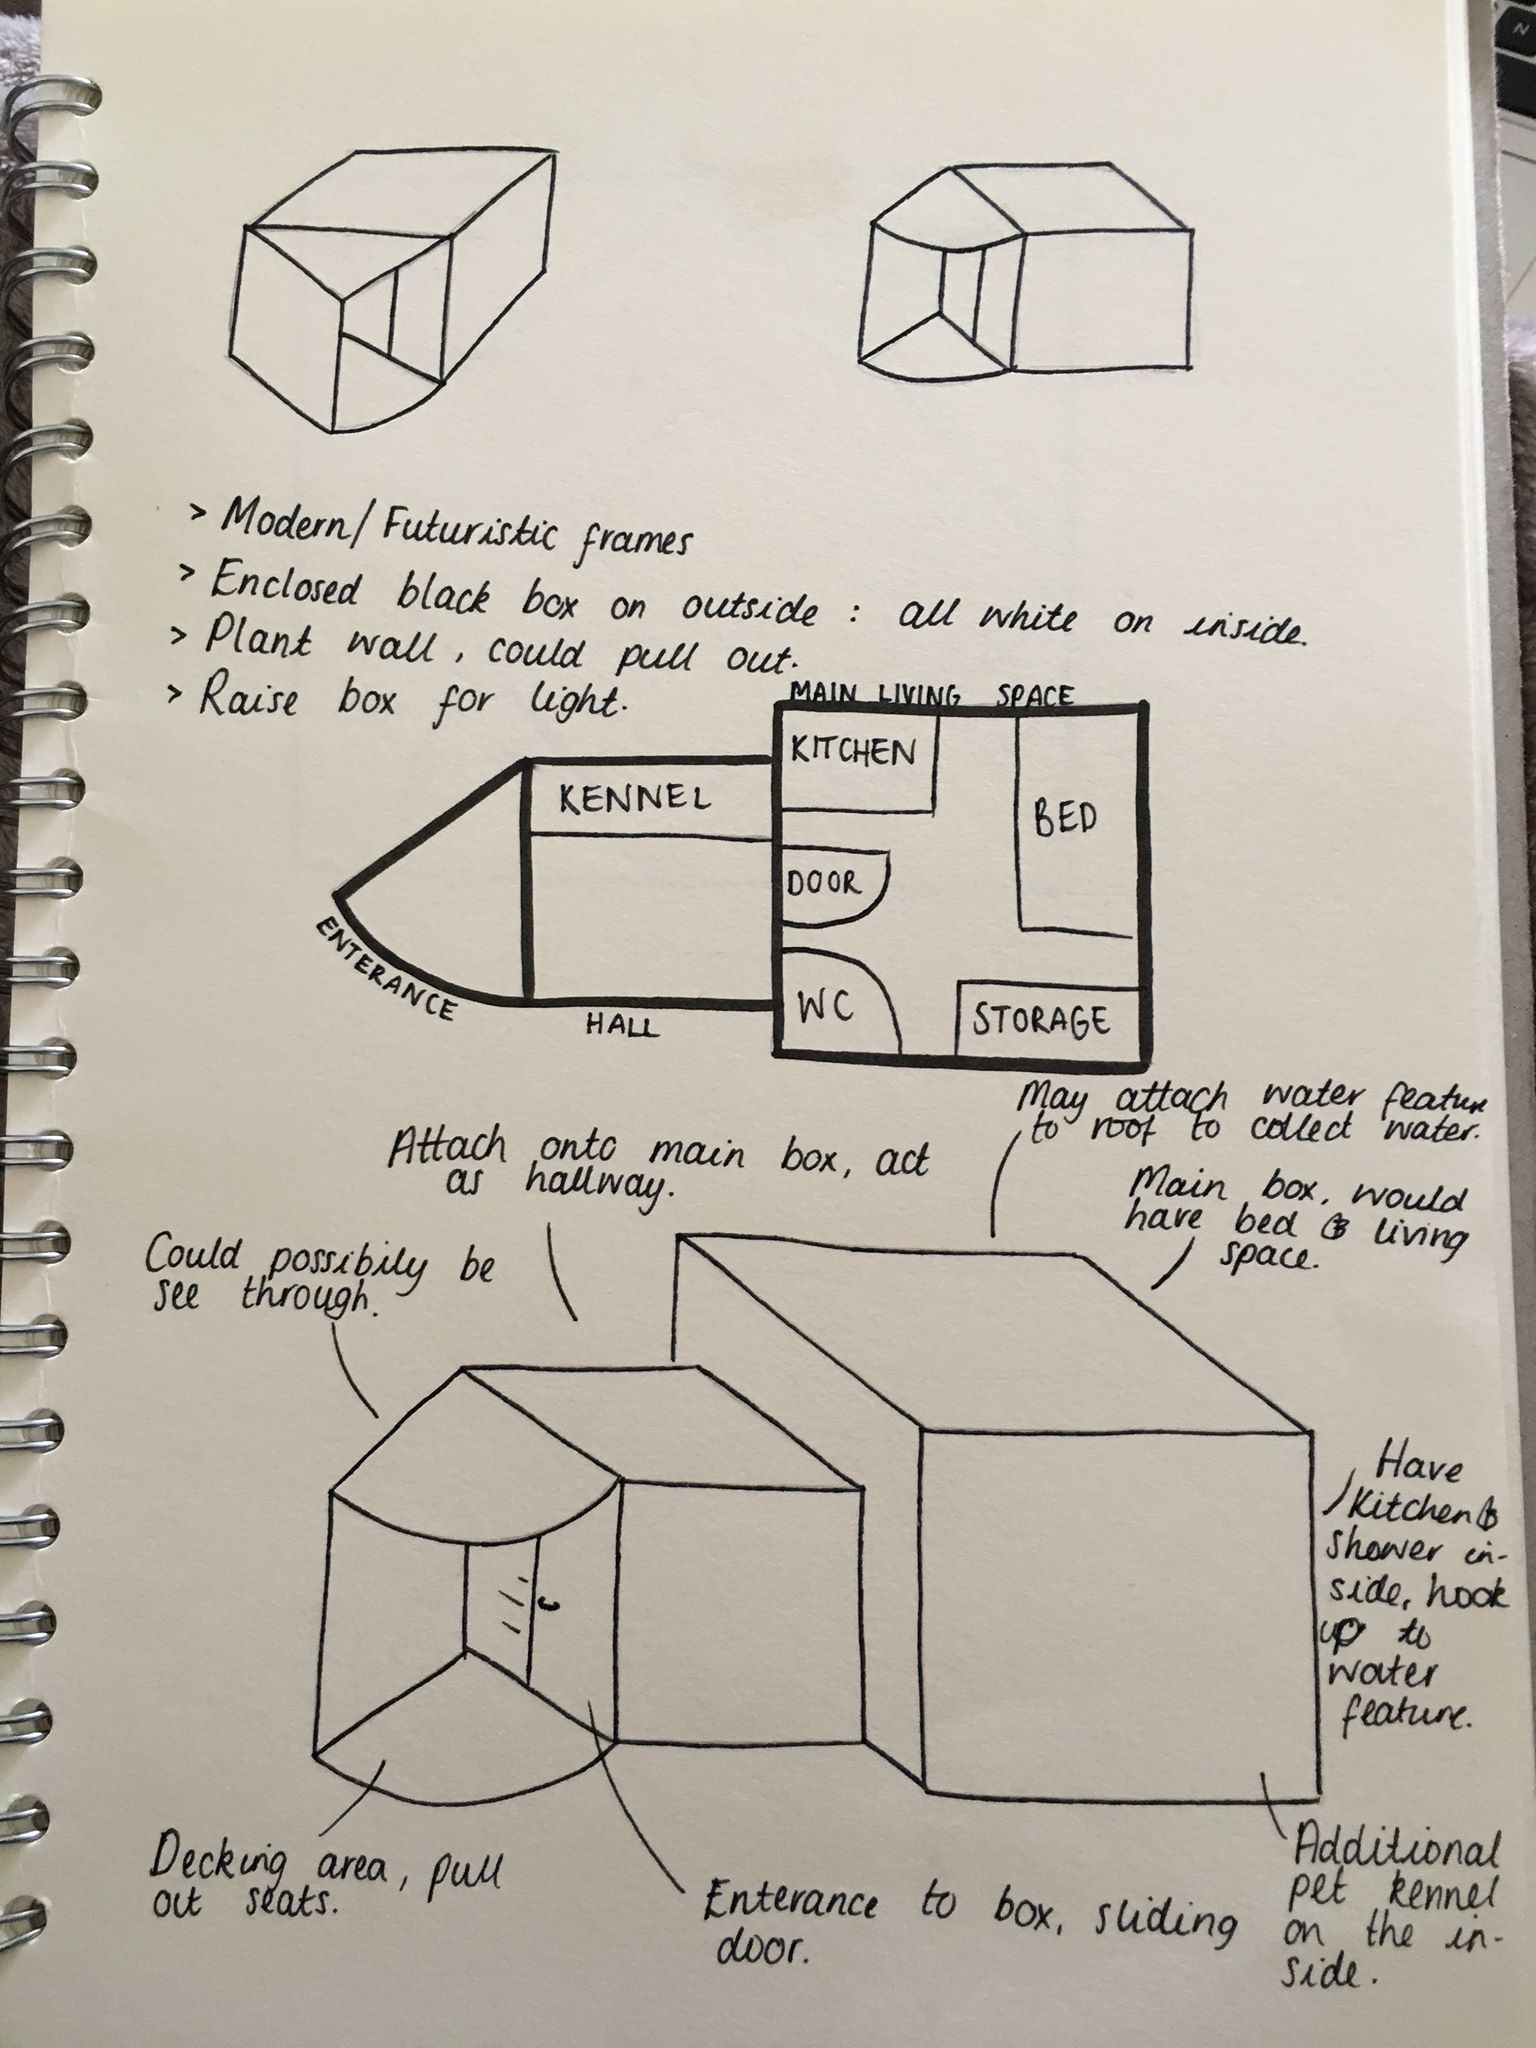 > Modern/Futuristic frames
> Enclosed black box on outside : all white on inside.
> Plant wall, could pull out.
> Raise box for light.
MAIN LIVING SPACE
KITCHEN
KENNEL
BED
DOOR
ENTERANCE
WC
STORAGE
HALL
May attach water feature
to roof to collect water.
Attach onto main box, act
as hallway.
Main box, would
have bed & living
space.
Could possibily be
see through.
Have
Kitchen &
shower in-
side, hook
up to
water
feature.
Decking area, pull
out seats.
Enterance to box, sliding
door.
Additional
pet kennel
on the in-
side.
N